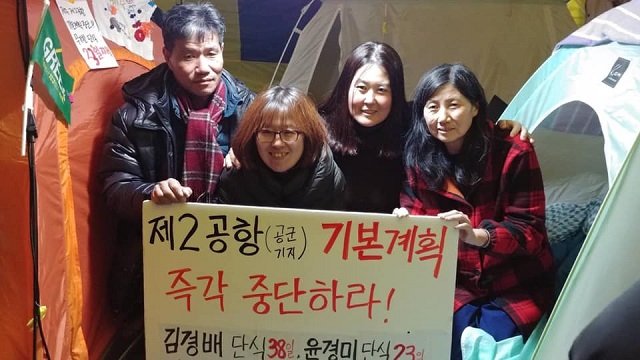 제2공항(공군기지) 기본계획
즉각 중단하라!
김경배 단식 38일, 윤경미 단식 23일